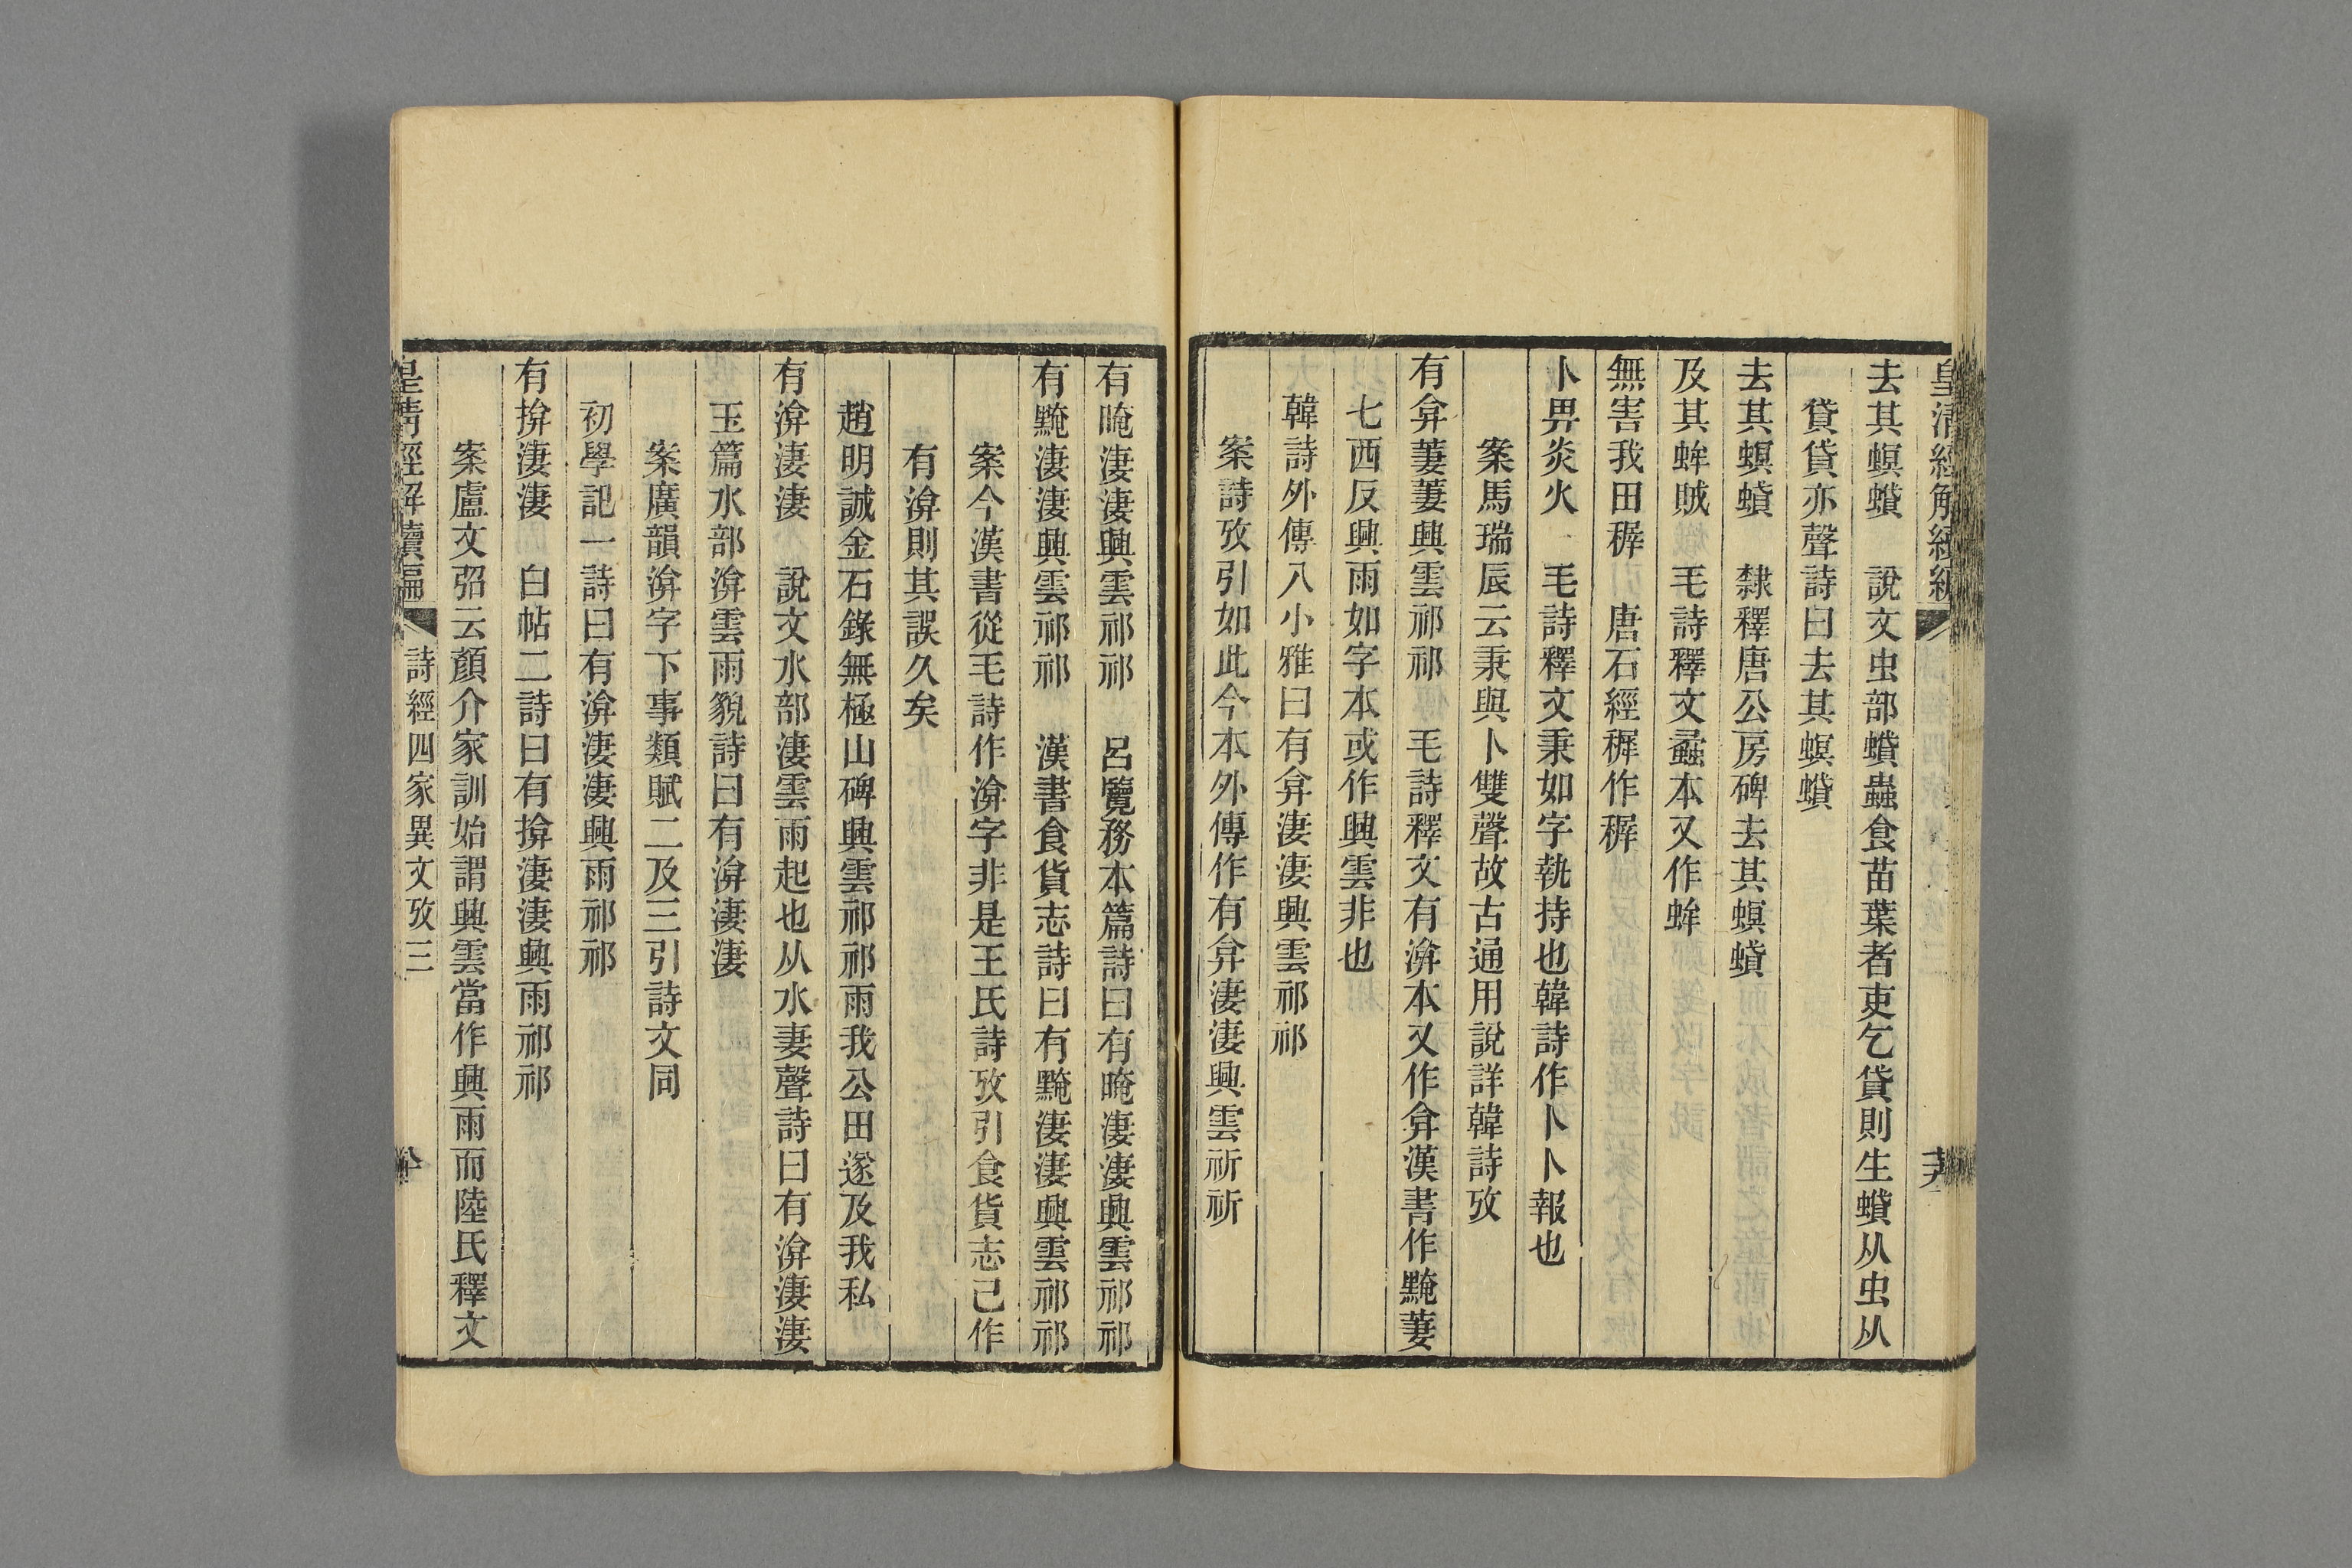 皇清經解續編
去其螟蟘　說文虫部蟘蟲食苗葉者吏乞貸則生蟘从虫从
貸貸亦聲詩曰去其螟蟘
去其螟蟥　隸釋唐公房碑去其螟蟥
及其蛑賊　毛詩釋文蟊本又作蛑
無害我田穉　唐石經穉作稺
卜畀炎火　毛詩釋文秉如字執持也韓詩作卜卜報也
案馬瑞辰云秉與卜雙聲故古通用說詳韓詩攷
有弇萋萋興雲祁祁　毛詩釋文有渰本又作弇漢書作黤萋
七西反興雨如字本或作興雲非也
韓詩外傳八小雅曰有弇淒淒興雲祁祁
案詩攷引如此今本外傳作有弇淒淒興雲祈祈
有晻淒淒興雲祁祁　呂覽務本篇詩曰有晻淒淒興雲祁祁
有黤淒淒興雲祁祁　漢書食貨志詩曰有黤淒淒興雲祁祁
案今漢書從毛詩作渰字非是王氏詩攷引食貨志已作
有渰則其誤久矣
趙明誠金石錄無極山碑興雲祁祁雨我公田遂及我私
有渰淒淒　說文水部淒雲雨起也从水妻聲詩曰有渰淒淒
玉篇水部渰雲雨貌詩曰有渰淒淒
案廣韻渰字下事類賦二及三引詩文同
初學記一詩曰有渰淒淒興雨祁祁
有揜淒淒　白帖二詩曰有揜淒淒興雨祁祁
案盧文弨云顏介家訓始謂興雲當作興雨而陸氏釋文
皇清經解續編　詩經四家異文攷三